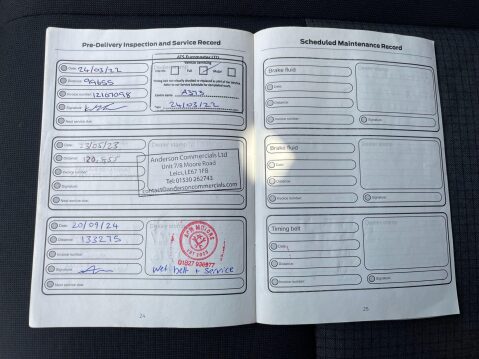 Pre-Delivery Inspection and Service Record
Date 24/03/22
Distance 99655
Invoice number 12107098
Signature
Next service due:
ATS Euromaster LTD
Vehicle Servicing
Interim
Full
Major
Centre name A373
Date 24/03/22
Date: 23/05/23
Distance: 120,455
Invoice number:
Signature:
Next service due:
Dealer stamp
Anderson Commercials Ltd
Unit 7/8 Moore Road
Leics, LE67 1FB
Tel: 01530 262743
contact@andersoncommercials.com
Date: 20/09/24
Distance: 133275
Invoice number:
Signature:
Next service due:
Dealer stamp
MOTORS
01827 930977
Wet belt + Service
24
Scheduled Maintenance Record
Brake fluid
Date:
Distance:
Invoice number:
Brake fluid
Date:
Distance:
Invoice number:
Timing belt
Date:
Distance:
Invoice number:
25